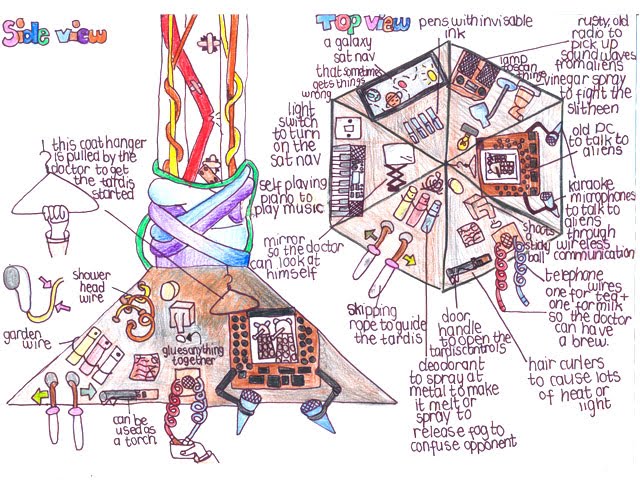 Side view
this coat hanger
is pulled by the
doctor to get
the tardis
started
shower
head
wire
garden
wire
glues anything
together
can be
used as
a torch.
Top view
a galaxy
sat nav
that sometimes
gets things
wrong
light
switch
to turn
on the
sat nav
self playing
piano to
play music
mirror
so the doctor
can look at
himself
skipping
rope to guide
the tardis
pens with invisible
ink
lamp
to scan
things
rusty, old
radio to
pick up
sound waves
from aliens
vinegar spray
to fight the
slitheen
old PC
to talk to
aliens
karaoke
microphones
to talk to
aliens
through
wireless
communication
shoots
a
sticky
ball
telephone
wires
one for tea +
one for milk
so the doctor
can have
a brew.
door
handle
to open the
tardis controls
deodorant
to spray at
metal to make
it melt or
spray to
release fog to
confuse opponent
hair curlers
to cause lots
of heat or
light